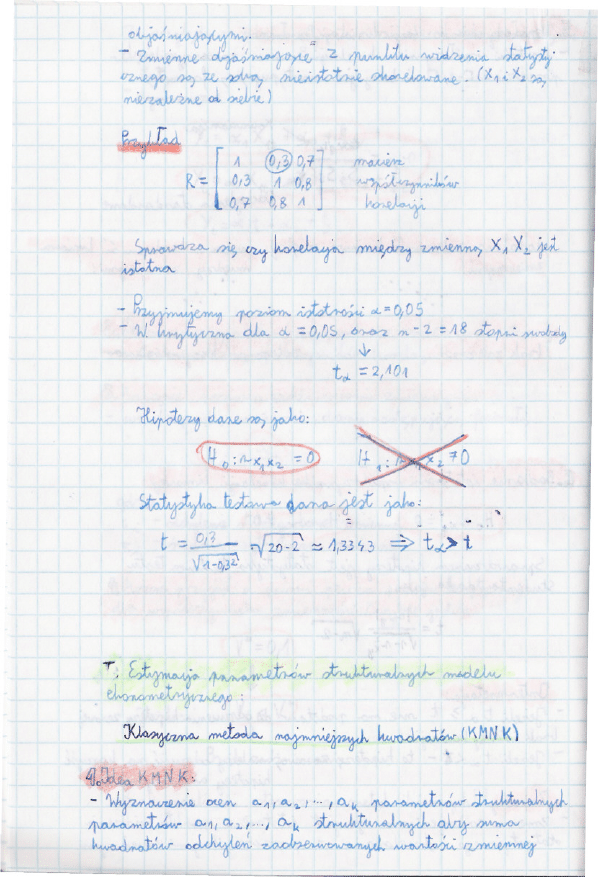 objaśniającymi.
- Zmienne objaśniające z punktu widzenia statysty
cznego są ze sobą nieistotnie skorelowane. (X1 i X2 są
niezależne od siebie)
Przykład
1 0,3 0,7 macierz
R = 0,3 1 0,8 współczynników
0,7 0,8 1 korelacji
Sprawdza się, czy korelacja między zmienną X1 X2 jest
istotna
- Przyjmujemy poziom istotności α = 0,05
- W. krytyczna dla α = 0,05, oraz n-2 = 18 stopni swobody
↓
tα = 2,101
Hipotezy dane są jako:
H0: r x1 x2 = 0 H1: r x1 x2 ≠ 0
Statystyka testowa dana jest jako:
t = 0,3 / √(1-0,3²) · √(20-2) ≈ 1,3343 ⇒ tα > t
T. Estymacja parametrów strukturalnych modelu
ekonometrycznego:
Klasyczna metoda najmniejszych kwadratów (KMNK)
Idea KMNK:
- Wyznaczenie ocen a1, a2, ..., ak parametrów strukturalnych
parametrów a1, a2, ..., ak strukturalnych aby suma
kwadratów odchyleń zaobserwowanych wartości zmiennej